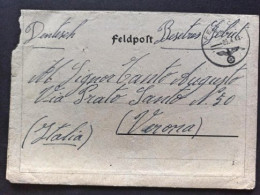 Deutsch Feldpost Besetzes Gebiet
Al Signor Tanto Augusto
Via Prato Santo N. 30
(Italia) (Verona)